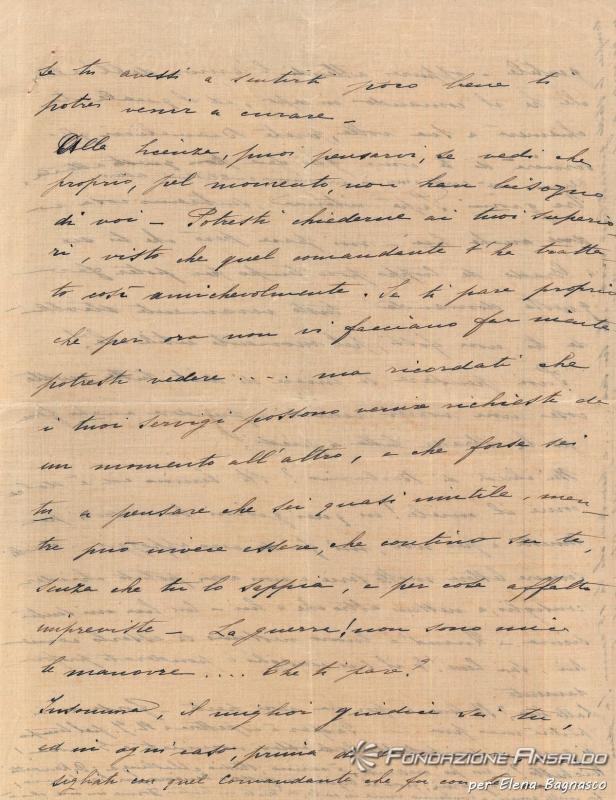 se tu avessi a sentirti poco bene to
potrei venir a curare -
Alla licenza, puoi pensarvi, se vedi che
proprio, pel momento, non han bisogno
di voi - Potresti chiederne ai tuoi superio
ri, visto che quel comandante t'ha tratta
to così amichevolmente. Se ti pare proprio
che per ora non vi facciano far niente
potresti vedere .... ma ricordati che
i tuoi servigi possono venire richiesti da
un momento all'altro, e che forse sei
tu a pensare che sei quasi inutile, men-
tre può invece essere, che contino su te,
senza che tu lo sappia, e per cose affatto
impreviste - La guerra! non sono mica
le manovre .... Che ti pare?
Insomma, il miglior giudice sei tu,
ed in ogni caso, prima di
sigliati con quel comandante che fu con
FONDAZIONE ANSALDO
per Elena Bagnasco